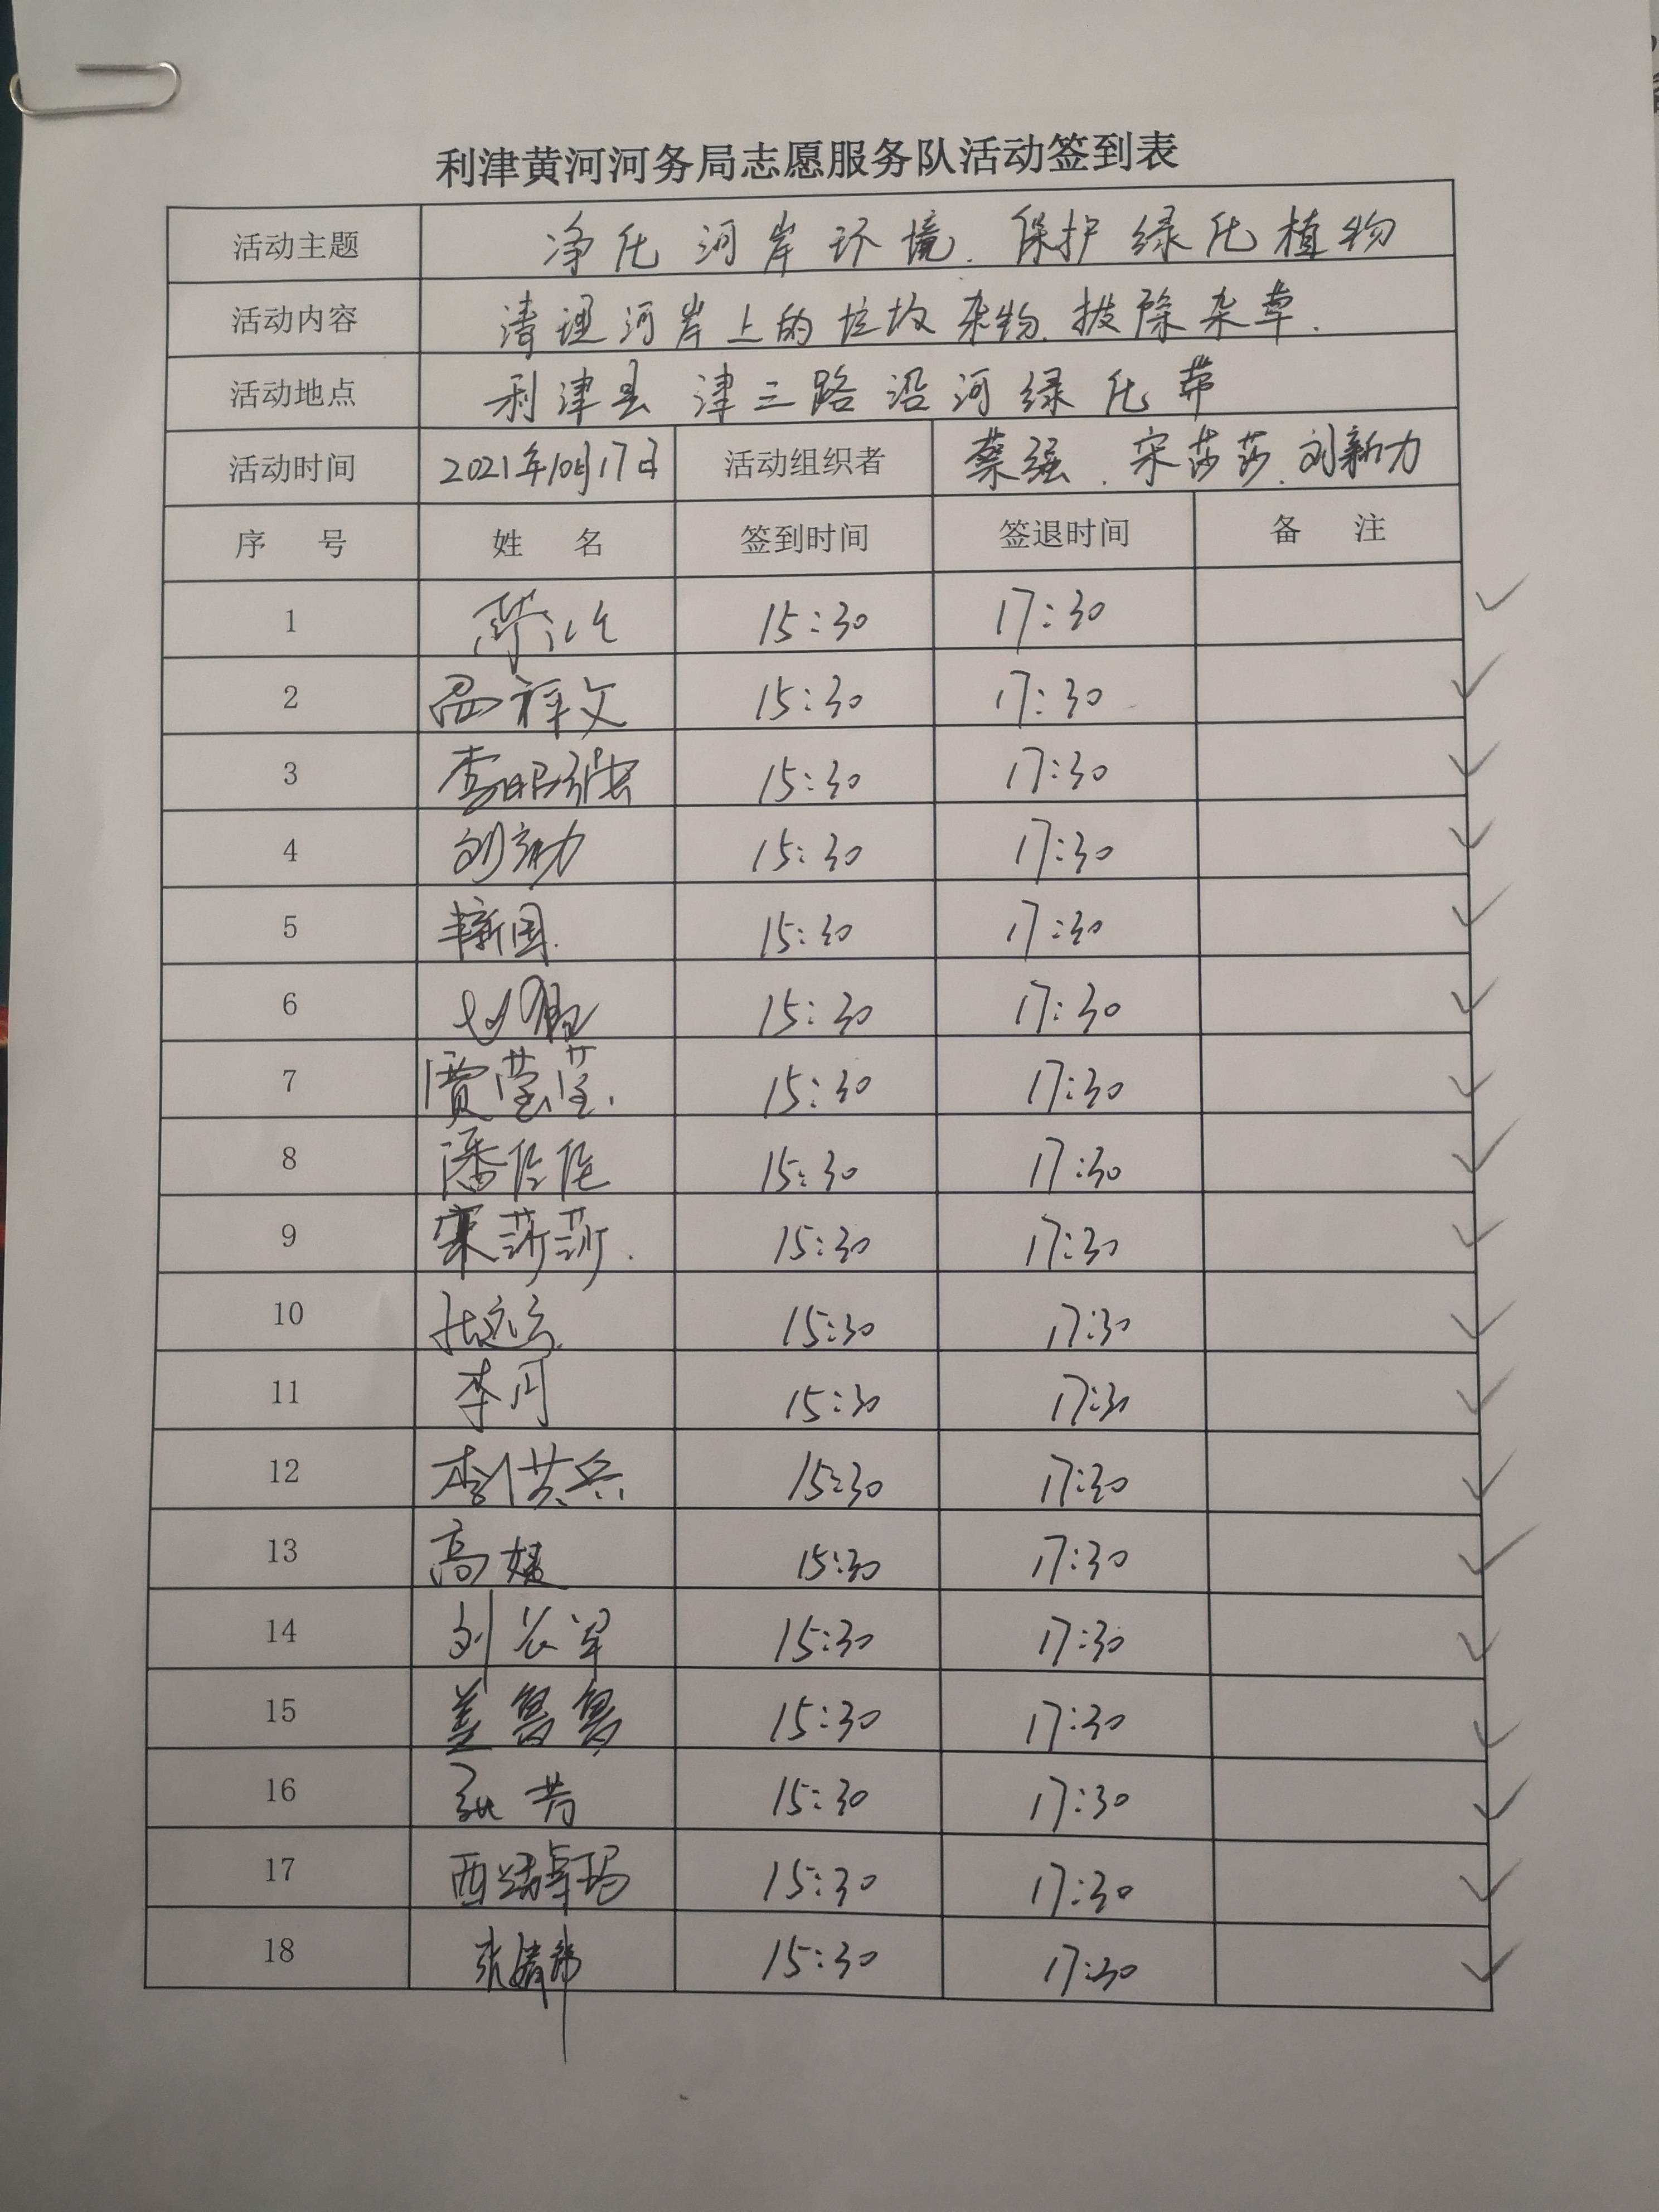 利津黄河河务局志愿服务队活动签到表
活动主题 净化河岸环境、保护绿化植物
活动内容 清理河岸上的垃圾杂物、拔除杂草.
活动地点 利津县津三路沿河绿化带
活动时间 2021年10月17日 活动组织者 蔡强、宋莎莎、刘新力
序号 姓名 签到时间 签退时间 备注
1 15:30 17:30
2 15:30 17:30
3 15:30 17:30
4 刘新力 15:30 17:30
5 15:30 17:30
6 15:30 17:30
7 贾莹莹. 15:30 17:30
8 潘佳佳 15:30 17:30
9 宋莎莎. 15:30 17:30
10 15:30 17:30
11 李丹 15:30 17:30
12 15:30 17:30
13 高婕 15:30 17:30
14 15:30 17:30
15 盖鲁鲁 15:30 17:30
16 15:30 17:30
17 15:30 17:30
18 15:30 17:30